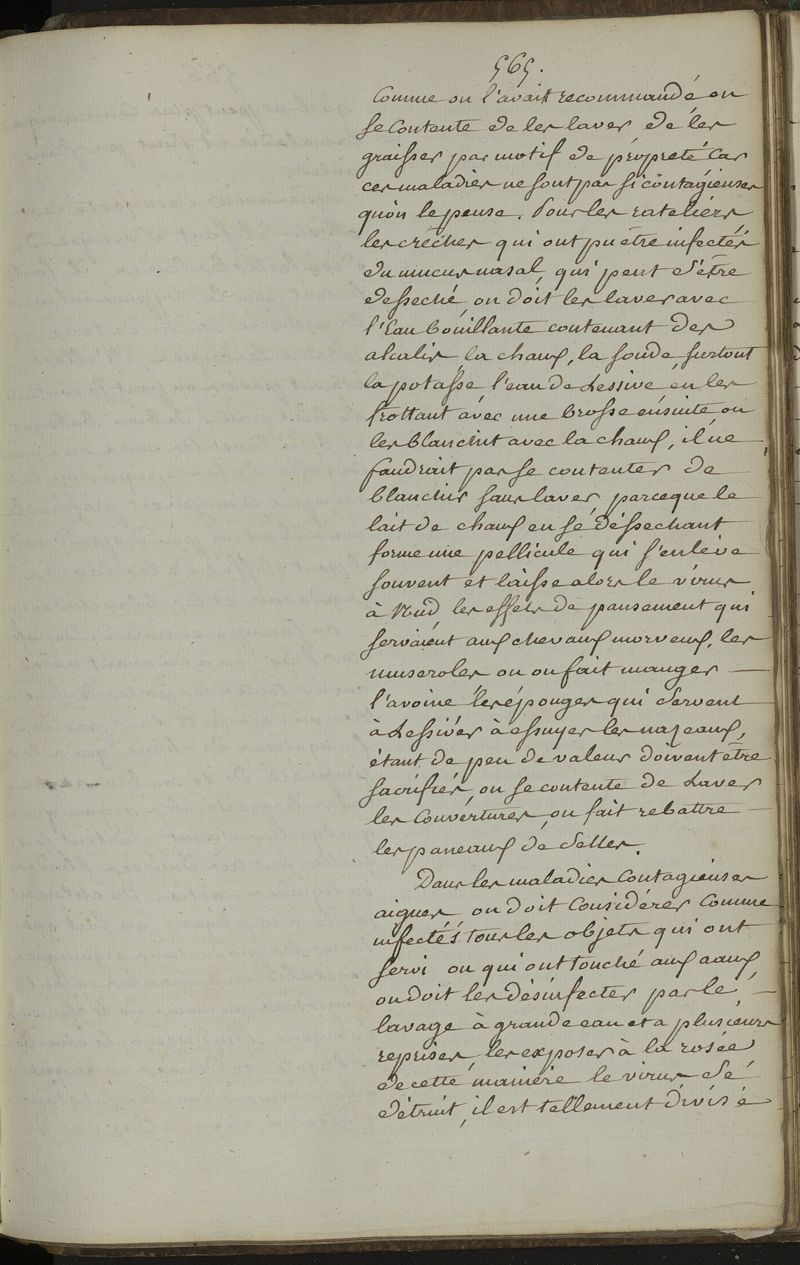 565.
Comme on l'avait recommandé on
se Contente de les laver de les
graisser par motif de propreté Car
ces maladies ne sont pas si contagieuses
qu'on le pense. Pour les rateliers
les crêches qui ont pu être infectés
du mucus nasal, qui peut s'être
desseché, on doit les laver avec
l'Eau bouillante contenant des
alcalis la chaux, la soude surtout
la potasse l'eau de Lessive, en les
frottant avec une brosse ensuite on
les blanchit avec la chaux, il ne
faudrait pas se contenter de
blanchir sans laver, parceque le
lait de chaux en se déssechant
forme une pellicule qui s'enlève
souvent et laisse alors le virus
à Nud les effets de pansement qui
servaient aux chevaux morveux, les
museroles ou on fait manger
l'avoine les éponges qui servent
à Lessiver à essuyer les nazeaux,
étant de peu de valeur doivent être
sacrifiés, on se contente de Laver
les Couvertures, on fait rebattre
les paneaux de Selles.
Dans les maladies Contagieuses
aigues, on doit Considérer Comme
infectés tous les objets qui ont
servi ou qui ont touché aux aaux
on doit les désinfecter par le
lavage à grande eau et a plusieurs
reprises, les exposer à la rosée
de cette manière le virus Se
détruit, il est tellement divisé